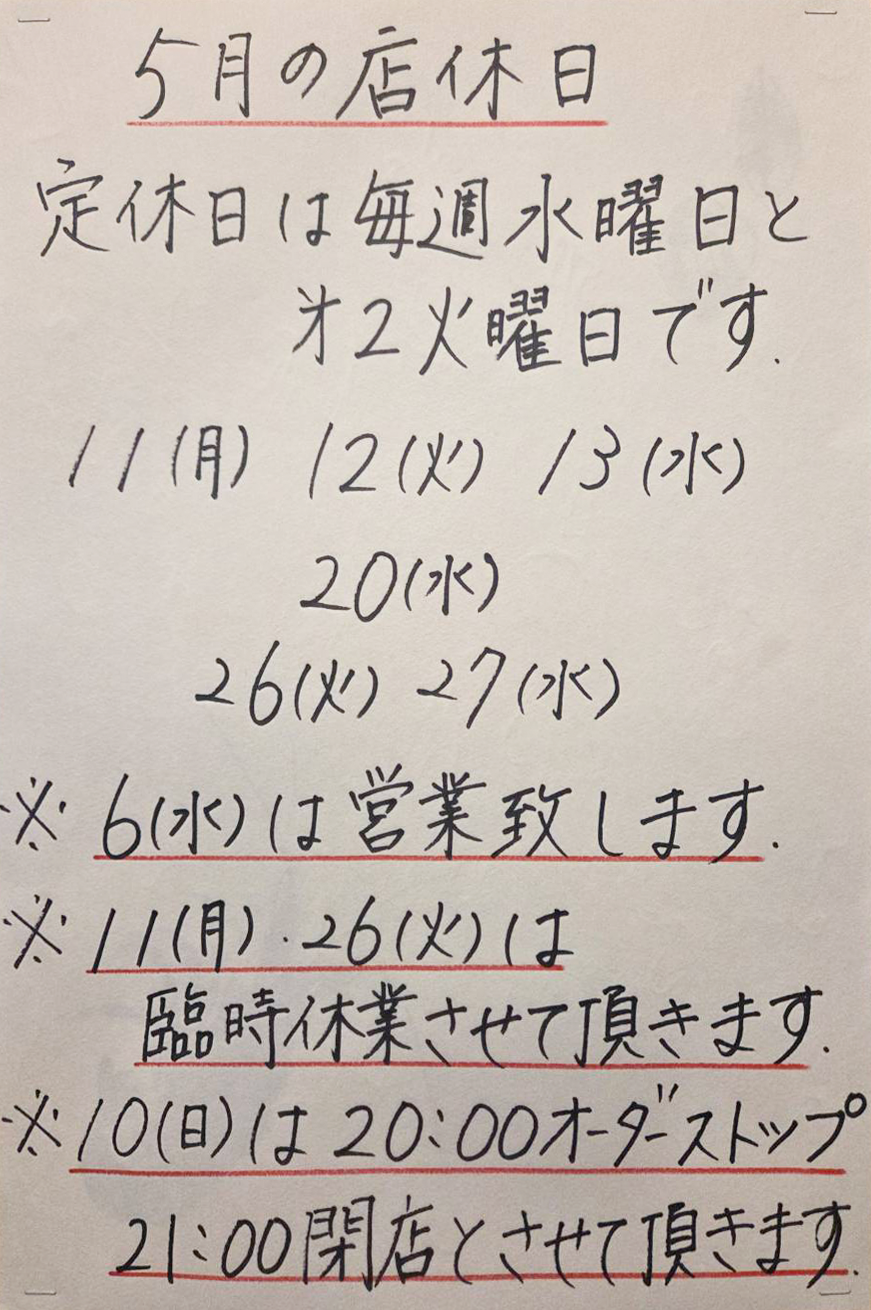 5月の店休日
定休日は毎週水曜日と
才2火曜日です.
11(月) 12(火) 13(水)
20(水)
26(火) 27(水)
※ 6(水)は営業致します.
※ 11(月)・26(火)は
臨時休業させて頂きます.
※10(日)は20:00オーダーストップ
21:00閉店とさせて頂きます.